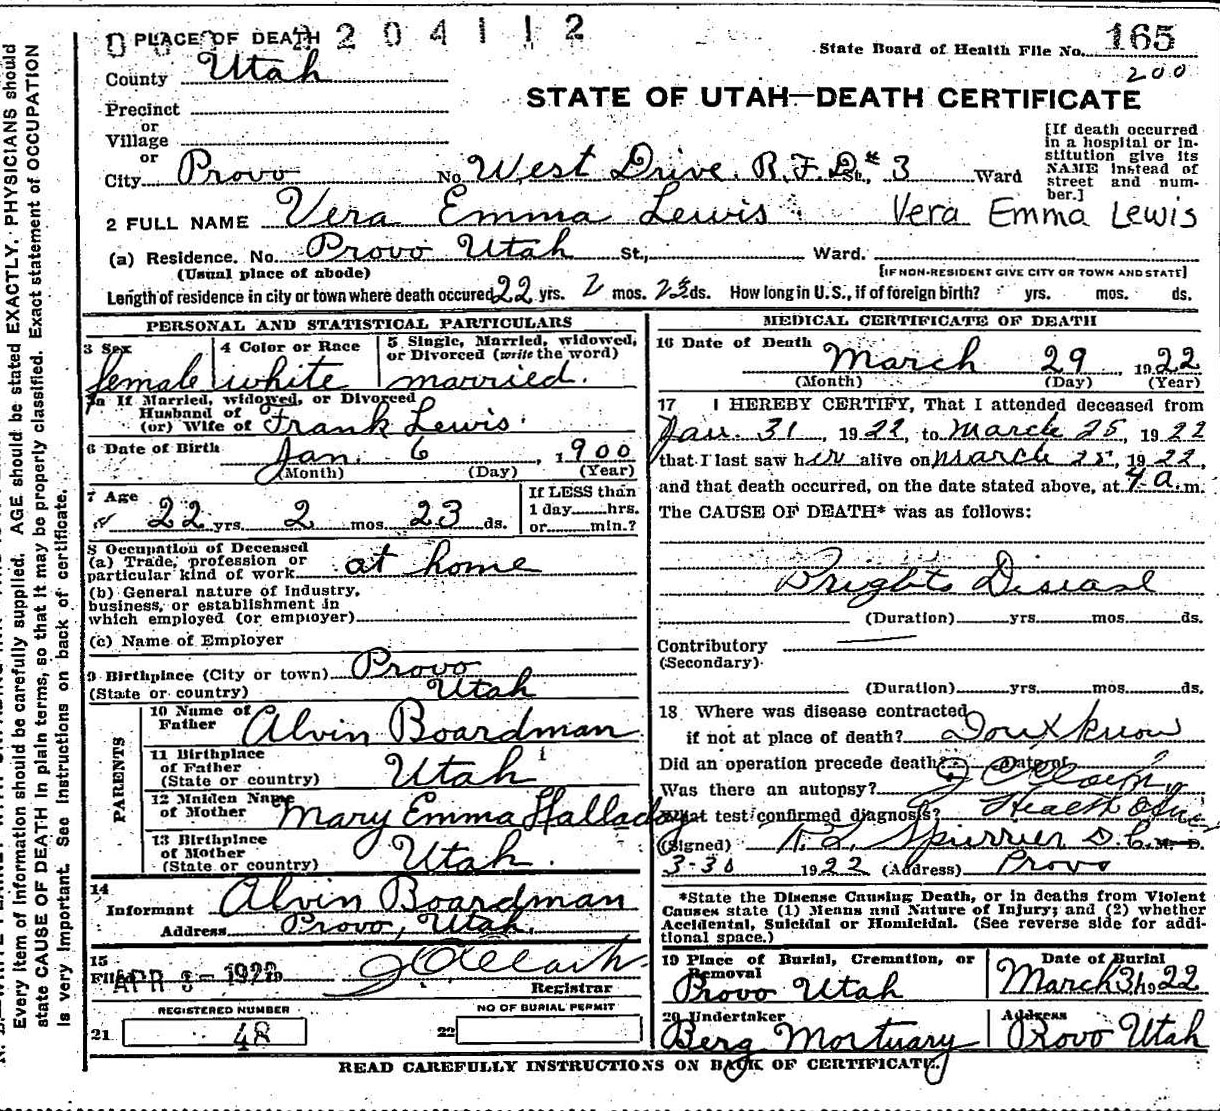 0 2 2 0 4 1 1 2
1 PLACE OF DEATH
State Board of Health File No. 165
County Utah
200
STATE OF UTAH—DEATH CERTIFICATE
Precinct
or
Village
or
City Provo No. West Drive R.F.D. St., # 3 Ward
[If death occurred in a hospital or institution give its NAME instead of street and number.]
2 FULL NAME Vera Emma Lewis Vera Emma Lewis
(a) Residence. No. Provo Utah St., Ward.
(Usual place of abode) [IF NON-RESIDENT GIVE CITY OR TOWN AND STATE]
Length of residence in city or town where death occured 22 yrs. 2 mos. 23 ds. How long in U.S., if of foreign birth? yrs. mos. ds.
PERSONAL AND STATISTICAL PARTICULARS
3 Sex female
4 Color or Race white
5 Single, Married, widowed, or Divorced (write the word) married.
5a If Married, widowed, or Divorced
Husband of
(or) Wife of Frank Lewis.
6 Date of Birth Jan. 6, 1900
(Month) (Day) (Year)
7 Age 22 yrs. 2 mos. 23 ds.
If LESS than
1 day hrs.
or min.?
8 Occupation of Deceased
(a) Trade, profession or
particular kind of work at home
(b) General nature of industry,
business, or establishment in
which employed (or employer)
(c) Name of Employer
9 Birthplace (City or town) Provo
(State or country) Utah
PARENTS
10 Name of
Father Alvin Boardman
11 Birthplace
of Father
(State or country) Utah
12 Maiden Name
of Mother Mary Emma Halladay
13 Birthplace
of Mother
(State or country) Utah.
14
Informant Alvin Boardman
Address Provo, Utah.
15
Filed APR 1922
Registrar
REGISTERED NUMBER
21 48
NO OF BURIAL PERMIT
22
MEDICAL CERTIFICATE OF DEATH
16 Date of Death March 29, 1922
(Month) (Day) (Year)
17 I HEREBY CERTIFY, That I attended deceased from
Jan. 31, 1922, to March 25, 1922
that I last saw her alive on March 25, 1922,
and that death occurred, on the date stated above, at 4 a.m.
The CAUSE OF DEATH* was as follows:
Brights Disease
(Duration) yrs. mos. ds.
Contributory
(Secondary)
(Duration) yrs. mos. ds.
18 Where was disease contracted
if not at place of death? Dont know
Did an operation precede death? Date of
Was there an autopsy?
What test confirmed diagnosis? Health
(Signed) Spurrier D.C. M. D.
3-30 1922 (Address) Provo
*State the Disease Causing Death, or in deaths from Violent
Causes state (1) Means and Nature of Injury; and (2) whether
Accidental, Suicidal or Homicidal. (See reverse side for addi-
tional space.)
19 Place of Burial, Cremation, or
Removal Provo Utah
Date of Burial
March 31 1922
20 Undertaker
Berg Mortuary
Address
Provo Utah
READ CAREFULLY INSTRUCTIONS ON BACK OF CERTIFICATE.
Every item of Information should be carefully supplied. AGE should be stated EXACTLY. PHYSICIANS should
state CAUSE OF DEATH in plain terms, so that it may be properly classified. Exact statement of OCCUPATION
is very important. See instructions on back of certificate.